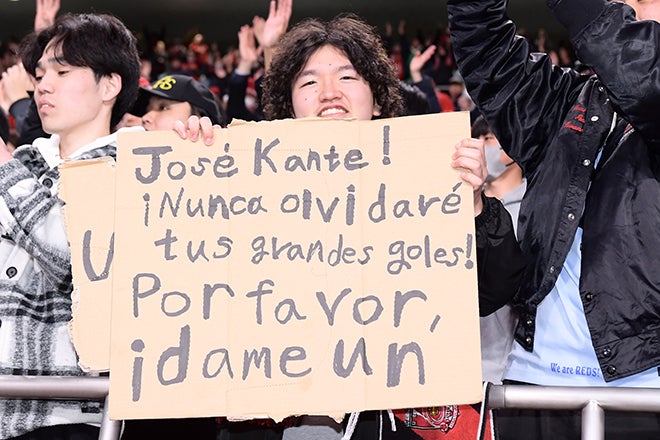 José Kante!
¡Nunca olvidaré
tus grandes goles!
Por favor,
¡dame un
U
We are REDS!